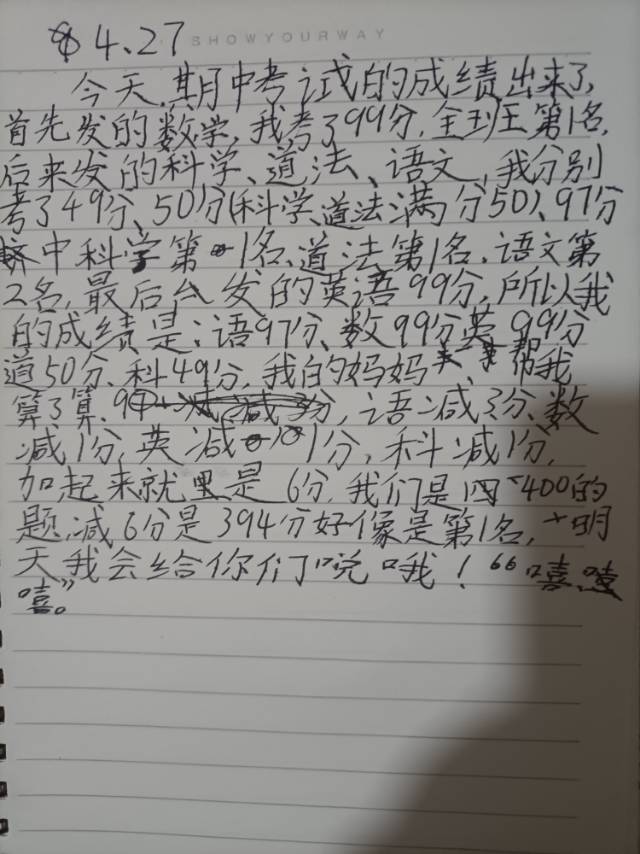 4.27
SHOWYOURWAY
今天,期中考试的成绩出来了,
首先发的数学,我考了99分,全班第1名,
后来发的科学、道法、语文,我分别
考了49分、50分(科学、道法满分50)、97分
中科学第1名、道法第1名,语文第
2名,最后发的英语99分,所以我
的成绩是:语97分、数99分英99分
道50分、科49分,我的妈妈帮我
算了算,语减3分、数
减1分,英减1分,科减1分,
加起来就是6分,我们是四、400的
题,减6分是394分好像是第1名,明
天我会给你们说哦!“嘻,嘻
嘻。”